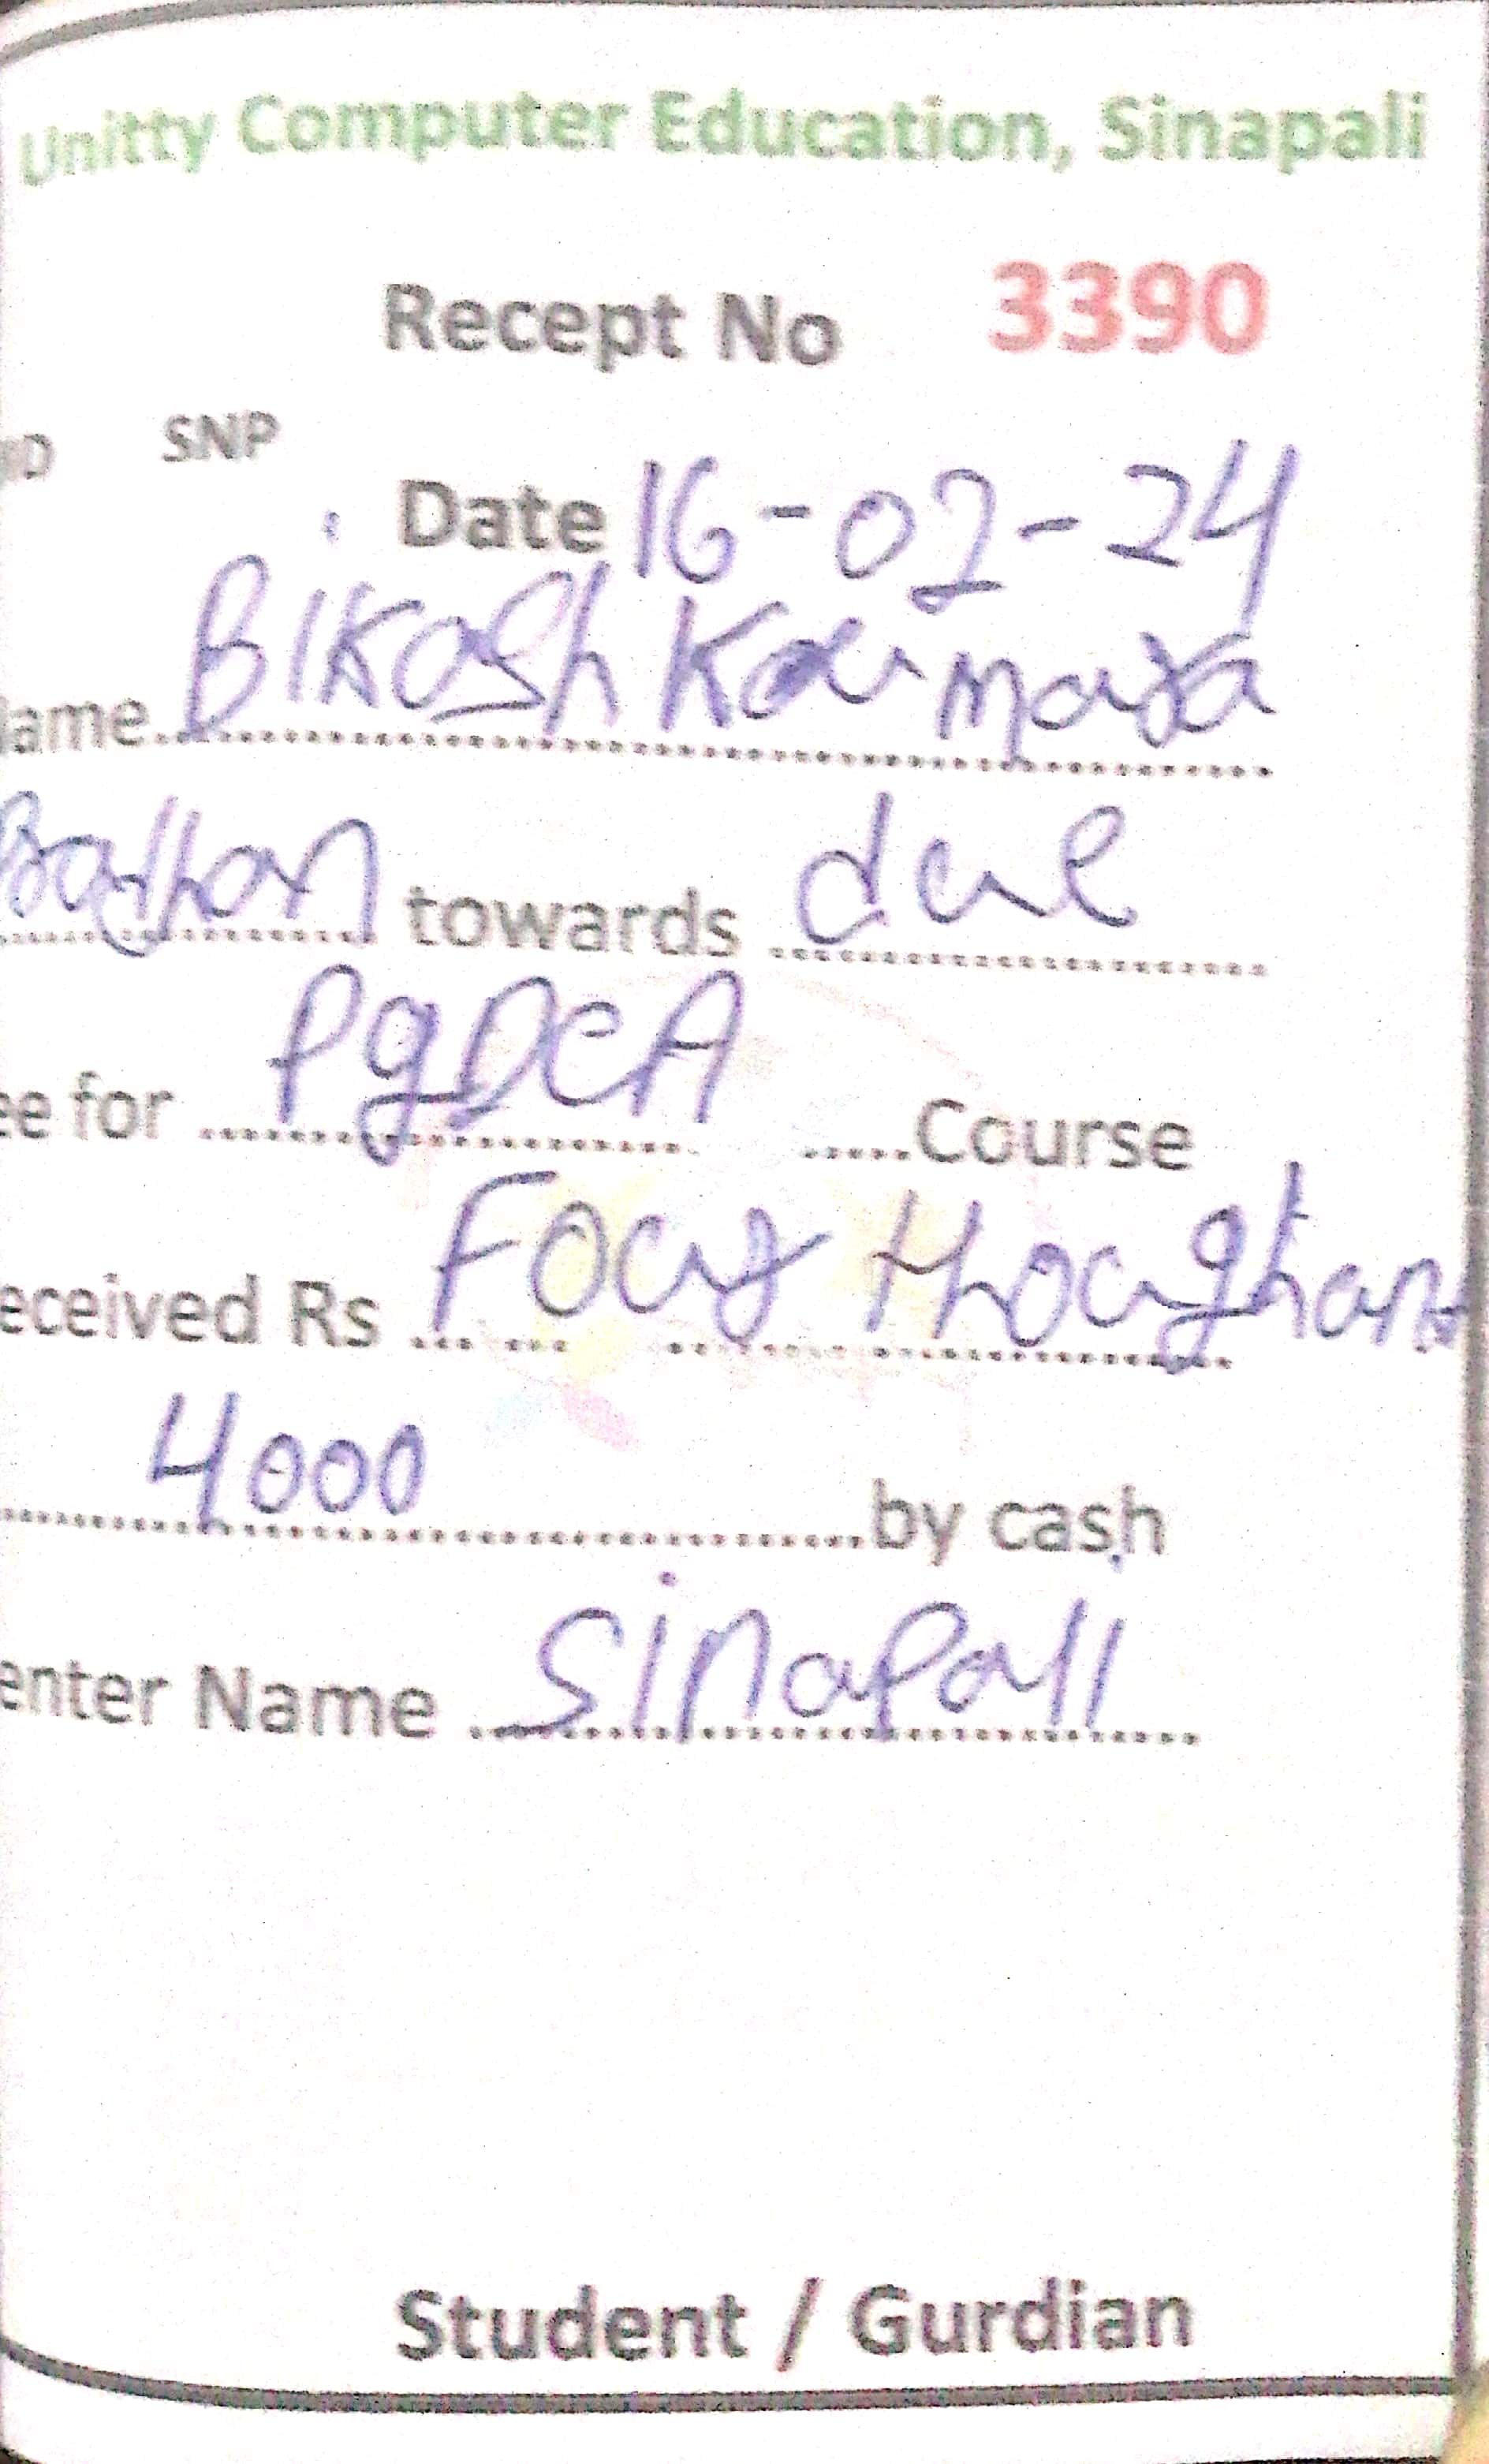 Unitty Computer Education, Sinapali
Recept No 3390
ID SNP
Date 16-02-24
ame Bikash
towards due
ee for PgDCA Course
eceived Rs Four
4000 by cash
enter Name Sinapali
Student / Gurdian